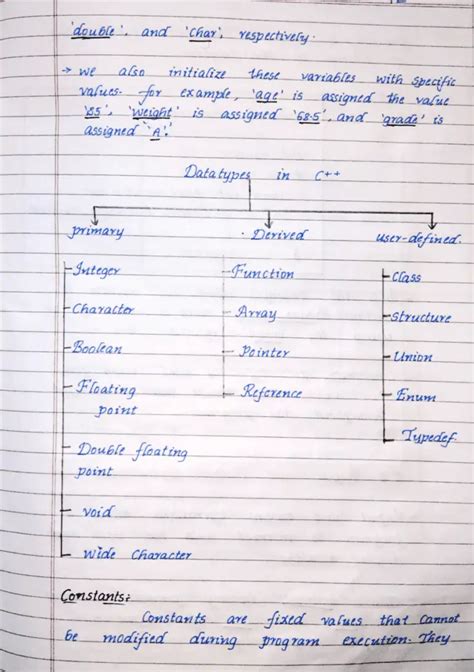 'double', and 'char', respectively.
→ we also initialize these variables with specific
values. for example, 'age' is assigned the value
'25', 'weight' is assigned '68.5', and 'grade' is
assigned 'A'.
Datatypes in C++
primary
Derived
user-defined.
Integer
Function
Class
Character
Array
Structure
Boolean
Pointer
Union
Floating
point
Reference
Enum
Typedef
Double floating
point
void
wide Character
Constants:
Constants are fixed values that cannot
be modified during program execution. They